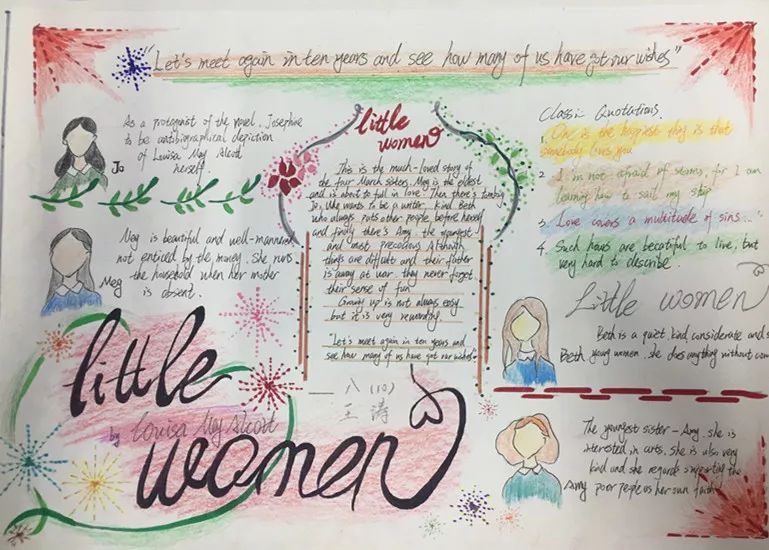 "Let's meet again in ten years and see how many of us have got our wishes"
As a protagonist of the novel. Josephine
to be autibiographical depiction
of Louisa May Alcott
herself.
Jo
Meg is beautiful and well-mannered,
not enticed by the money. She runs
the household when her mother
is absent.
Meg
little
women
by Louisa May Alcott
little
women
This is the much-loved story of
the four March sisters, Meg is the eldest
and is about to fall in love. Then there's
Jo, who wants to be a writer, Kind Beth
who always puts other people before herself
and finally there's Amy, the youngest
and most precocious Although
things are difficult and their father
is away at war they never forget
their sense of fun.
Growing up is not always easy
but it is very rewarding.
"Let's meet again in ten years and
see how many of us have got our wishes"
八(10)
王涛
Classic Quotations.
1. One is the happiest thing is that
somebody loves you
2. I'm not afraid of storms, for I am
learning how to sail my ship
3. Love covers a multitude of sins..."
4. Such hours are beautiful to live, but
very hard to describe.
Little women
Beth is a quiet, kind, considerate and
young women. she does anything without
Beth
The youngest sister - Amy. she is
interested in arts. She is also very
kind and she regards supporting the
poor people as her own faith
Amy